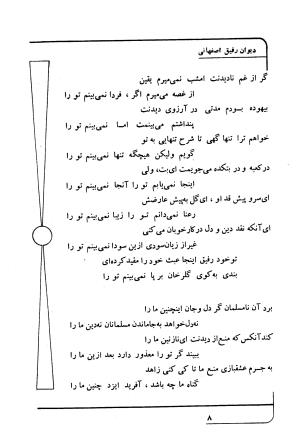 دیوان رفیق اصفهانی
گر از غم نادیدنت امشب نمی‌میرم یقین
از غصه می‌میرم اگر، فردا نمی‌بینم تو را
بیهوده بودم مدتی در آرزوی دیدنت
پنداشتم می‌بینمت اما نمی‌بینم تو را
خواهم ترا تنها گهی تا شرح تنهایی به تو
گویم ولیکن هیچگه تنها نمی‌بینم تو را
در کعبه و در بتکده می‌جویمت ای بت، ولی
اینجا نمی‌یابم تو را آنجا نمی‌بینم تو را
ای سرو پیش قد او، ای گل به پیش عارضش
رعنا نمی‌دانم تو را زیبا نمی‌بینم تو را
ای آنکه نقد دین و دل در کار خوبان می‌کنی
غیر از زیان سودی ازین سودا نمی‌بینم تو را
تو خود رفیق اینجا عبث خود را مقید کرده‌ای
بندی به کوی گلرخان بر پا نمی‌بینم تو را
برد آن نامسلمان گر دل و جان اینچنین ما را
نه دل خواهد به جا ماندن مسلمانان نه دین ما را
کند آنکس که منع از دیدنت ای نازنین ما را
ببیند گر تو را معذور دارد بعد ازین ما را
به جرم عشقبازی منع ما تا کی کنی زاهد
گناه ما چه باشد، آفرید ایزد چنین ما را
۸